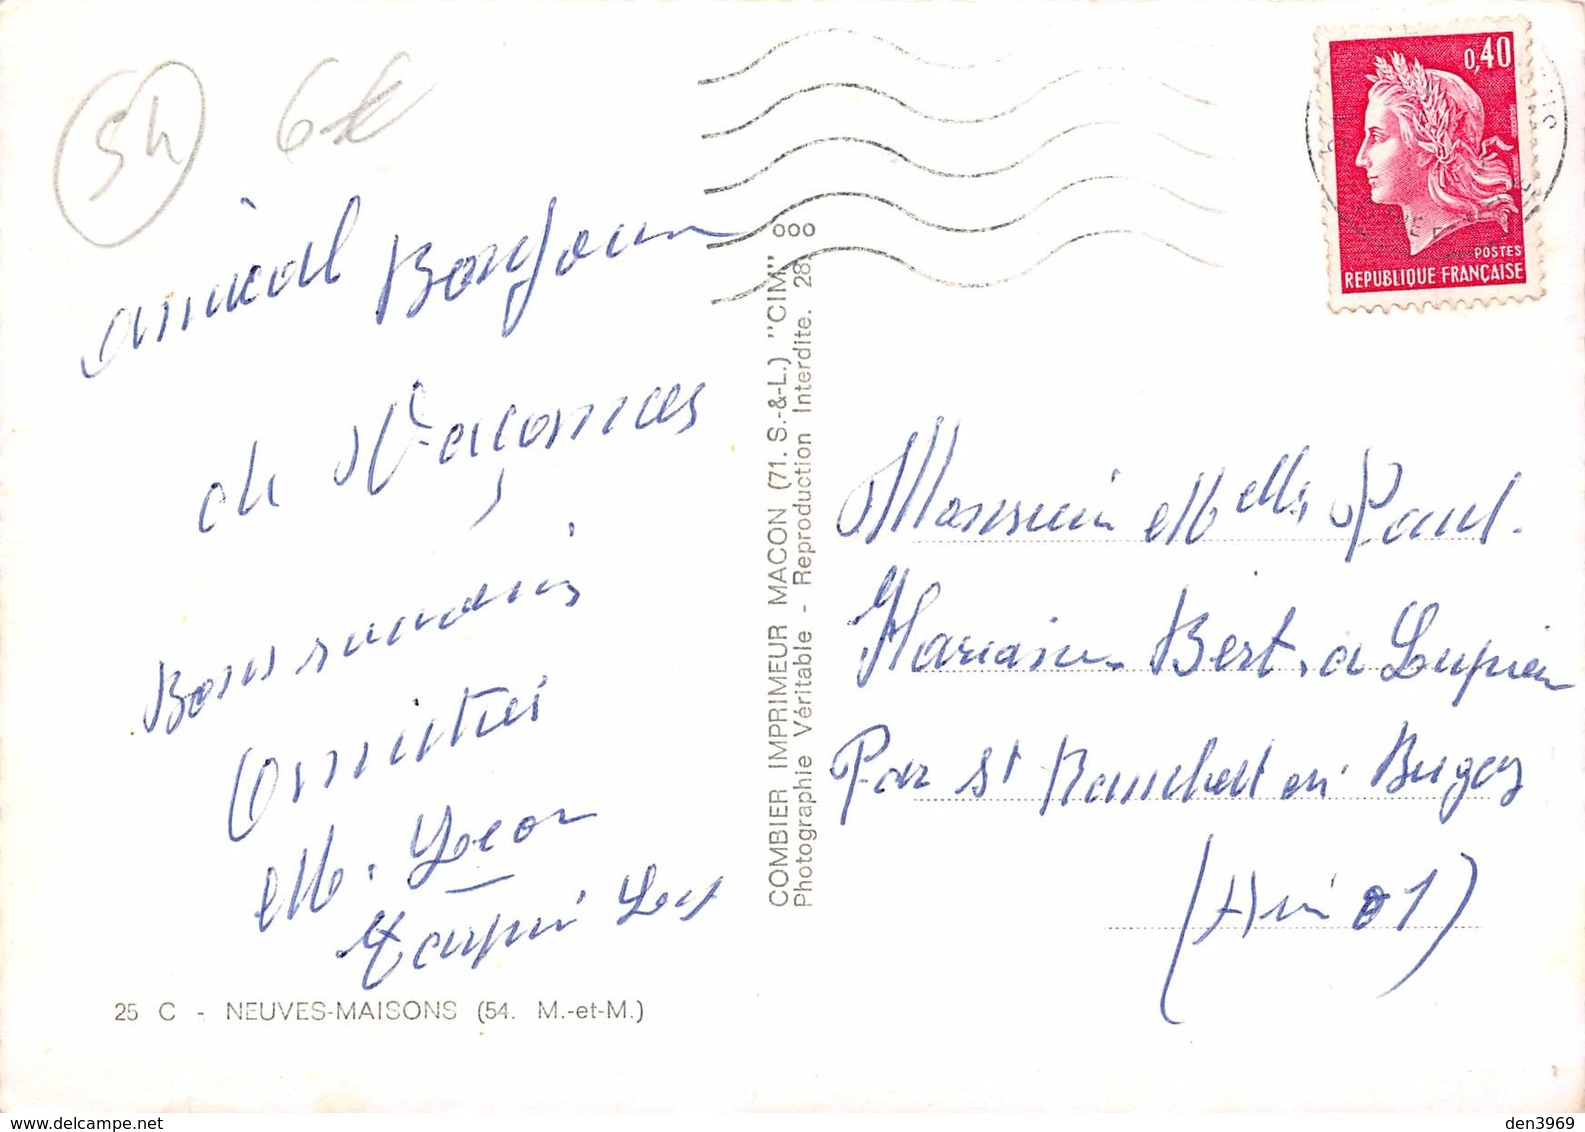 54
6€
amical Bonjour
de Vacances
Bons
Amitiés
M. Leon
0,40
POSTES
REPUBLIQUE FRANÇAISE
COMBIER IMPRIMEUR MACON (71. S.-&-L.) "CIM"
Photographie Véritable - Reproduction Interdite. 28 000
Monsieur Paul
Bert. a Lupieu
Par St Rambert en Bugey
(Ain 01)
25 C - NEUVES-MAISONS (54. M.-et-M.)
www.delcampe.net
den3969